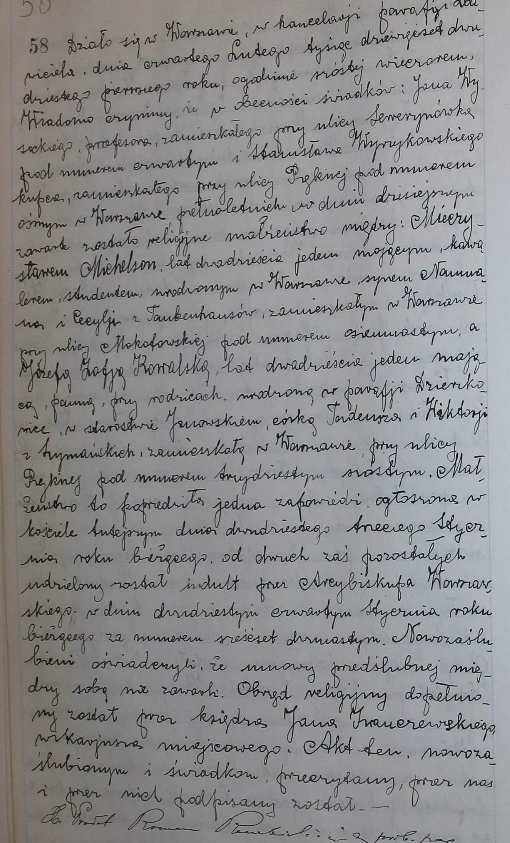 58 Działo się w Warszawie, w kancelarji parafji Zba-
wiciela, dnia czwartego Lutego tysiąc dziewięćset dwu-
dziestego pierwszego roku, o godzinie szóstej wieczorem,
Wiadomo czynimy, że w obecności świadków: Jana Wy-
sockiego, profesora, zamieszkałego przy ulicy Sewerynówka
pod numerem czwartym i Stanisława Wyrzykowskiego
kupca, zamieszkałego przy ulicy Pięknej pod numerem
ósmym w Warszawie pełnoletnich w dniu dzisiejszym
zawarte zostało religijne małżeństwo między: Mieczy-
sławem Michelson, lat dwadzieścia jeden mającym, kawa-
lerem, studentem, urodzonym w Warszawie, synem
i Cecylji z Taubenhausów, zamieszkałym w Warszawie
przy ulicy Mokotowskiej pod numerem osiemnastym, a
Józefą Zofją Kowalską, lat dwadzieścia jeden mają-
cą, panną, przy rodzicach, urodzoną w parafji Dzierzko-
wice, w starostwie Janowskiem, córką Tadeusza i Wiktorji
z Szymańskich, zamieszkałą w Warszawie, przy ulicy
Pięknej pod numerem trzydziestym szóstym. Mał-
żeństwo to poprzedziła jedna zapowiedź, ogłoszona w
kościele tutejszym dnia dwudziestego trzeciego Stycz-
nia roku bieżącego, od dwuch zaś pozostałych
udzielony został indult przez Arcybiskupa Warszaw-
skiego, w dniu dwudziestym czwartym Stycznia roku
bieżącego za numerem sześćset dwunastym. Nowozaślu-
bieni oświadczyli, że umowy przedślubnej mię-
dzy sobą nie zawarli. Obrzęd religijny dopełnio-
ny został przez księdza Jana Iwaczewskiego,
wikarjusza miejscowego. Akt ten, nowoza-
ślubionym i świadkom, przeczytany, przez nas
i przez nich podpisany został. —
Roman